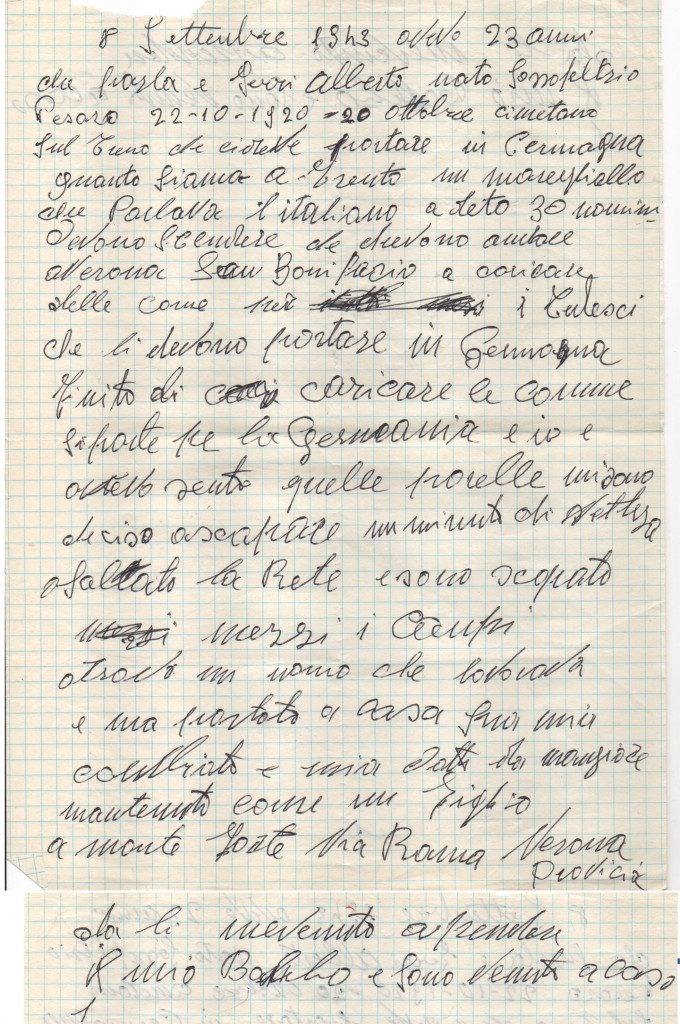 8 Settembre 1943 avevo 23 anni
chi parla e Serri Alberto nato Sassofeltrio
Pesaro 22-10-1920 - 20 ottobre cimetano
Sul treno che ci deve portare in Germagna
quanto Siamo a Trento un maresciallo
che Parlava l'italiano a deto 30 uomini
Devono Scendere che devono andare
a Verona San Bonifacio a caricare
delle come per i Tedesci
che li devono portare in Germagna
finito di caricare le gomme
si parte per la Germania e io e
avevo sento quelle parolle mi sono
deciso a scapare un minuto di
o Saltato la Rete e sono scapato
mezzi i Campi
o trovato un uomo che lavorava
e ma portato a casa Sua mia
cambiato e mia datto da mangiare
mantenuto come un Figlio
a monte Forte Via Roma Verona
Provicia
da li me venuto a prendere
il mio Babbo e Sono venuto a casa
1